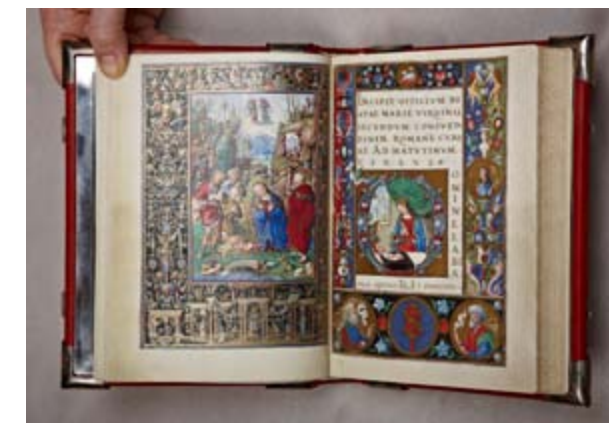 INCIPIT OFFICIUM BE
ATAE MARIE VIRGINIS
SECUNDUM CONSVETV
DINEM ROMANE CURI
AE AD MATUTINUM.
OMINE LABIA